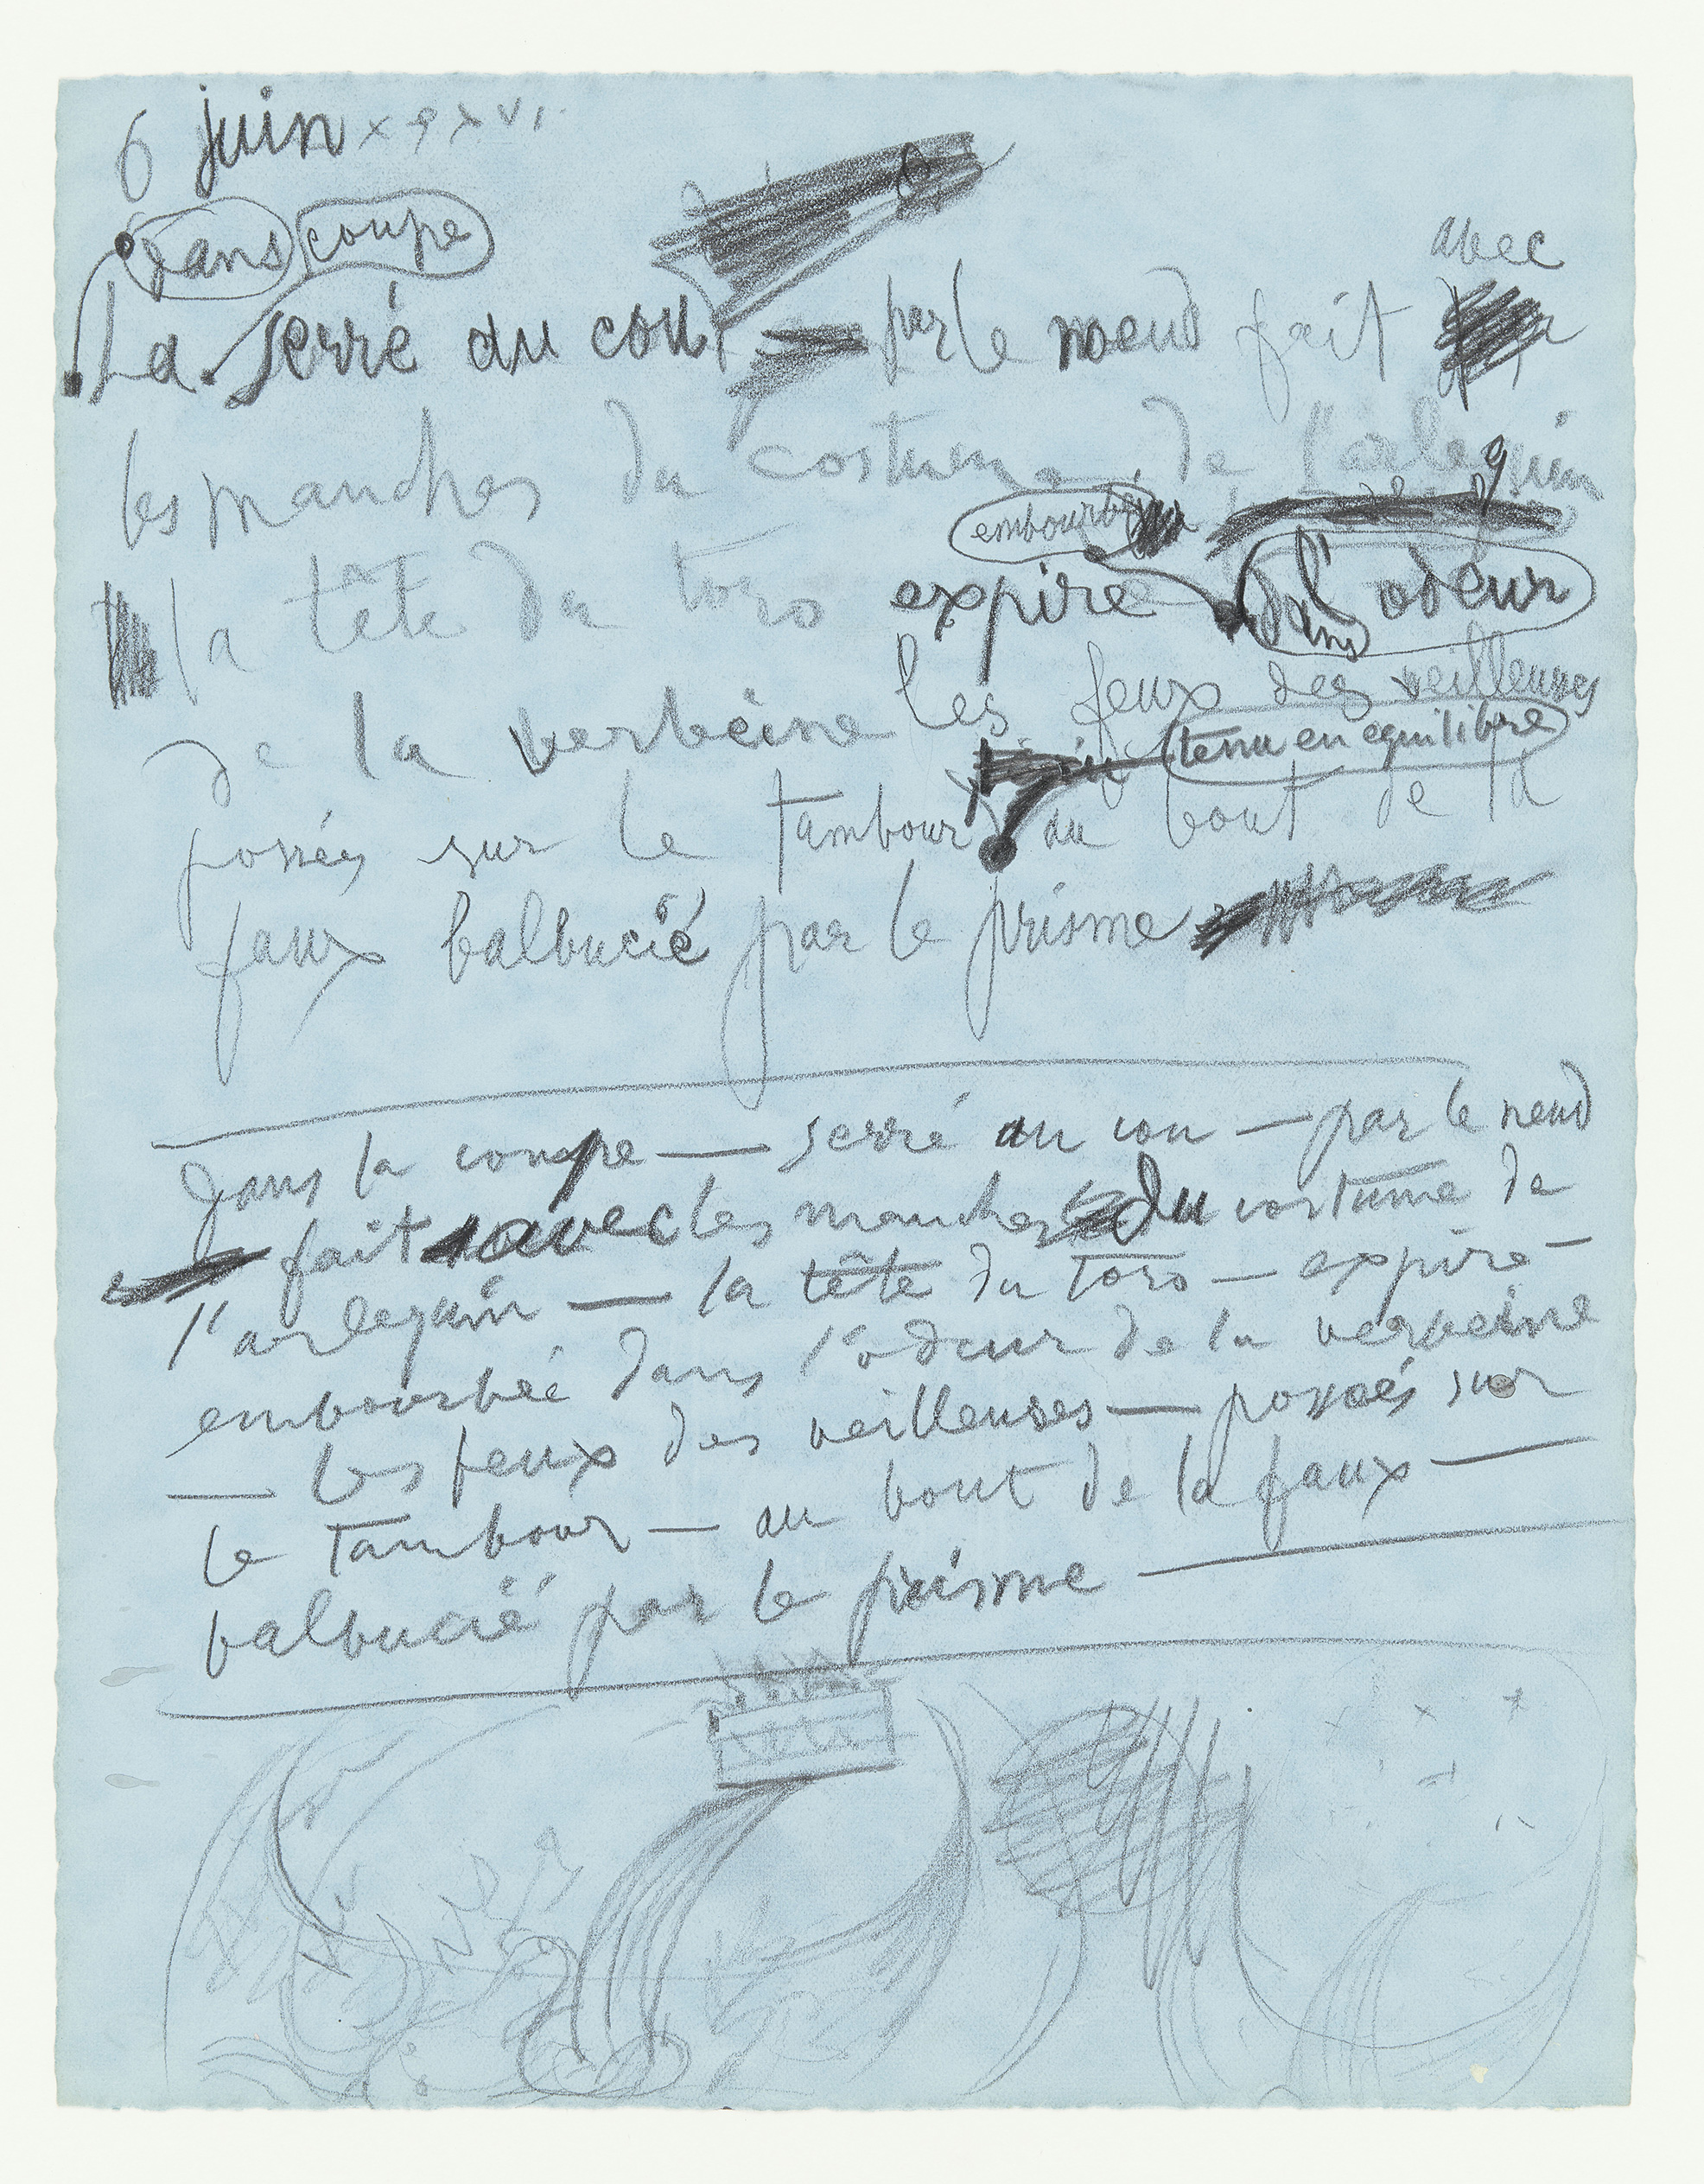 6 juin XXXVI.
dans coupe
avec
La serré au cou par le noeud fait
les manches du costume de l'arlequin
embourbé
la tête du toro expire dans l'odeur
de la verbeine les feux des veilleuses
tenu en equilibre
possés sur le tambour au bout de la
faux balbucié par le prisme
dans la coupe — serré au cou — par le neud
fait avec les manches du costume de
l'arlequin — la tête du toro — expire —
embourbée dans l'odeur de la verbeine
— les feux des veilleuses — possés sur
le tambour — au bout de la faux —
balbucié par le prisme —